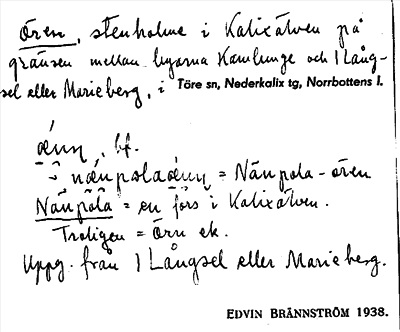 Ören, stenholme i Kalixälven på
gränsen mellan byarna Kamlunge och 1 Lång-
sel eller Marieberg, i Töre sn, Nederkalix tg, Norrbottens l.
bf.
= Nänpola-ören
Nänpola = en fors i Kalixälven.
Troligen = örn ek.
Uppg. från 1 Långsel eller Marieberg.
EDVIN BRÄNNSTRÖM 1938.